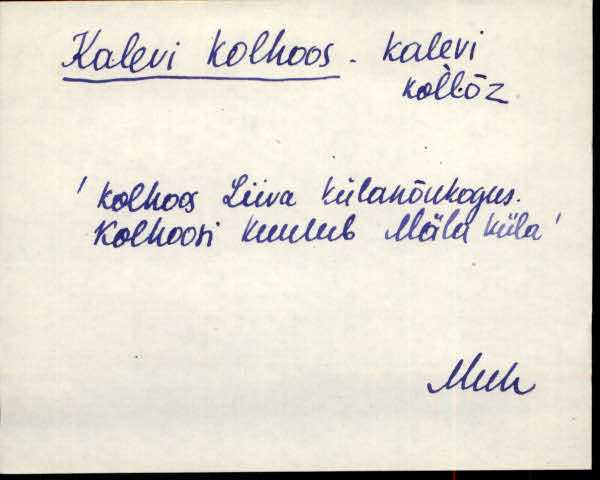 Kalevi kolhoos. kalevi
kol̀l̀ōz
' kolhoos Liiva külanõukogus.
Kolhoosi kuulub Mäla küla'
Muh